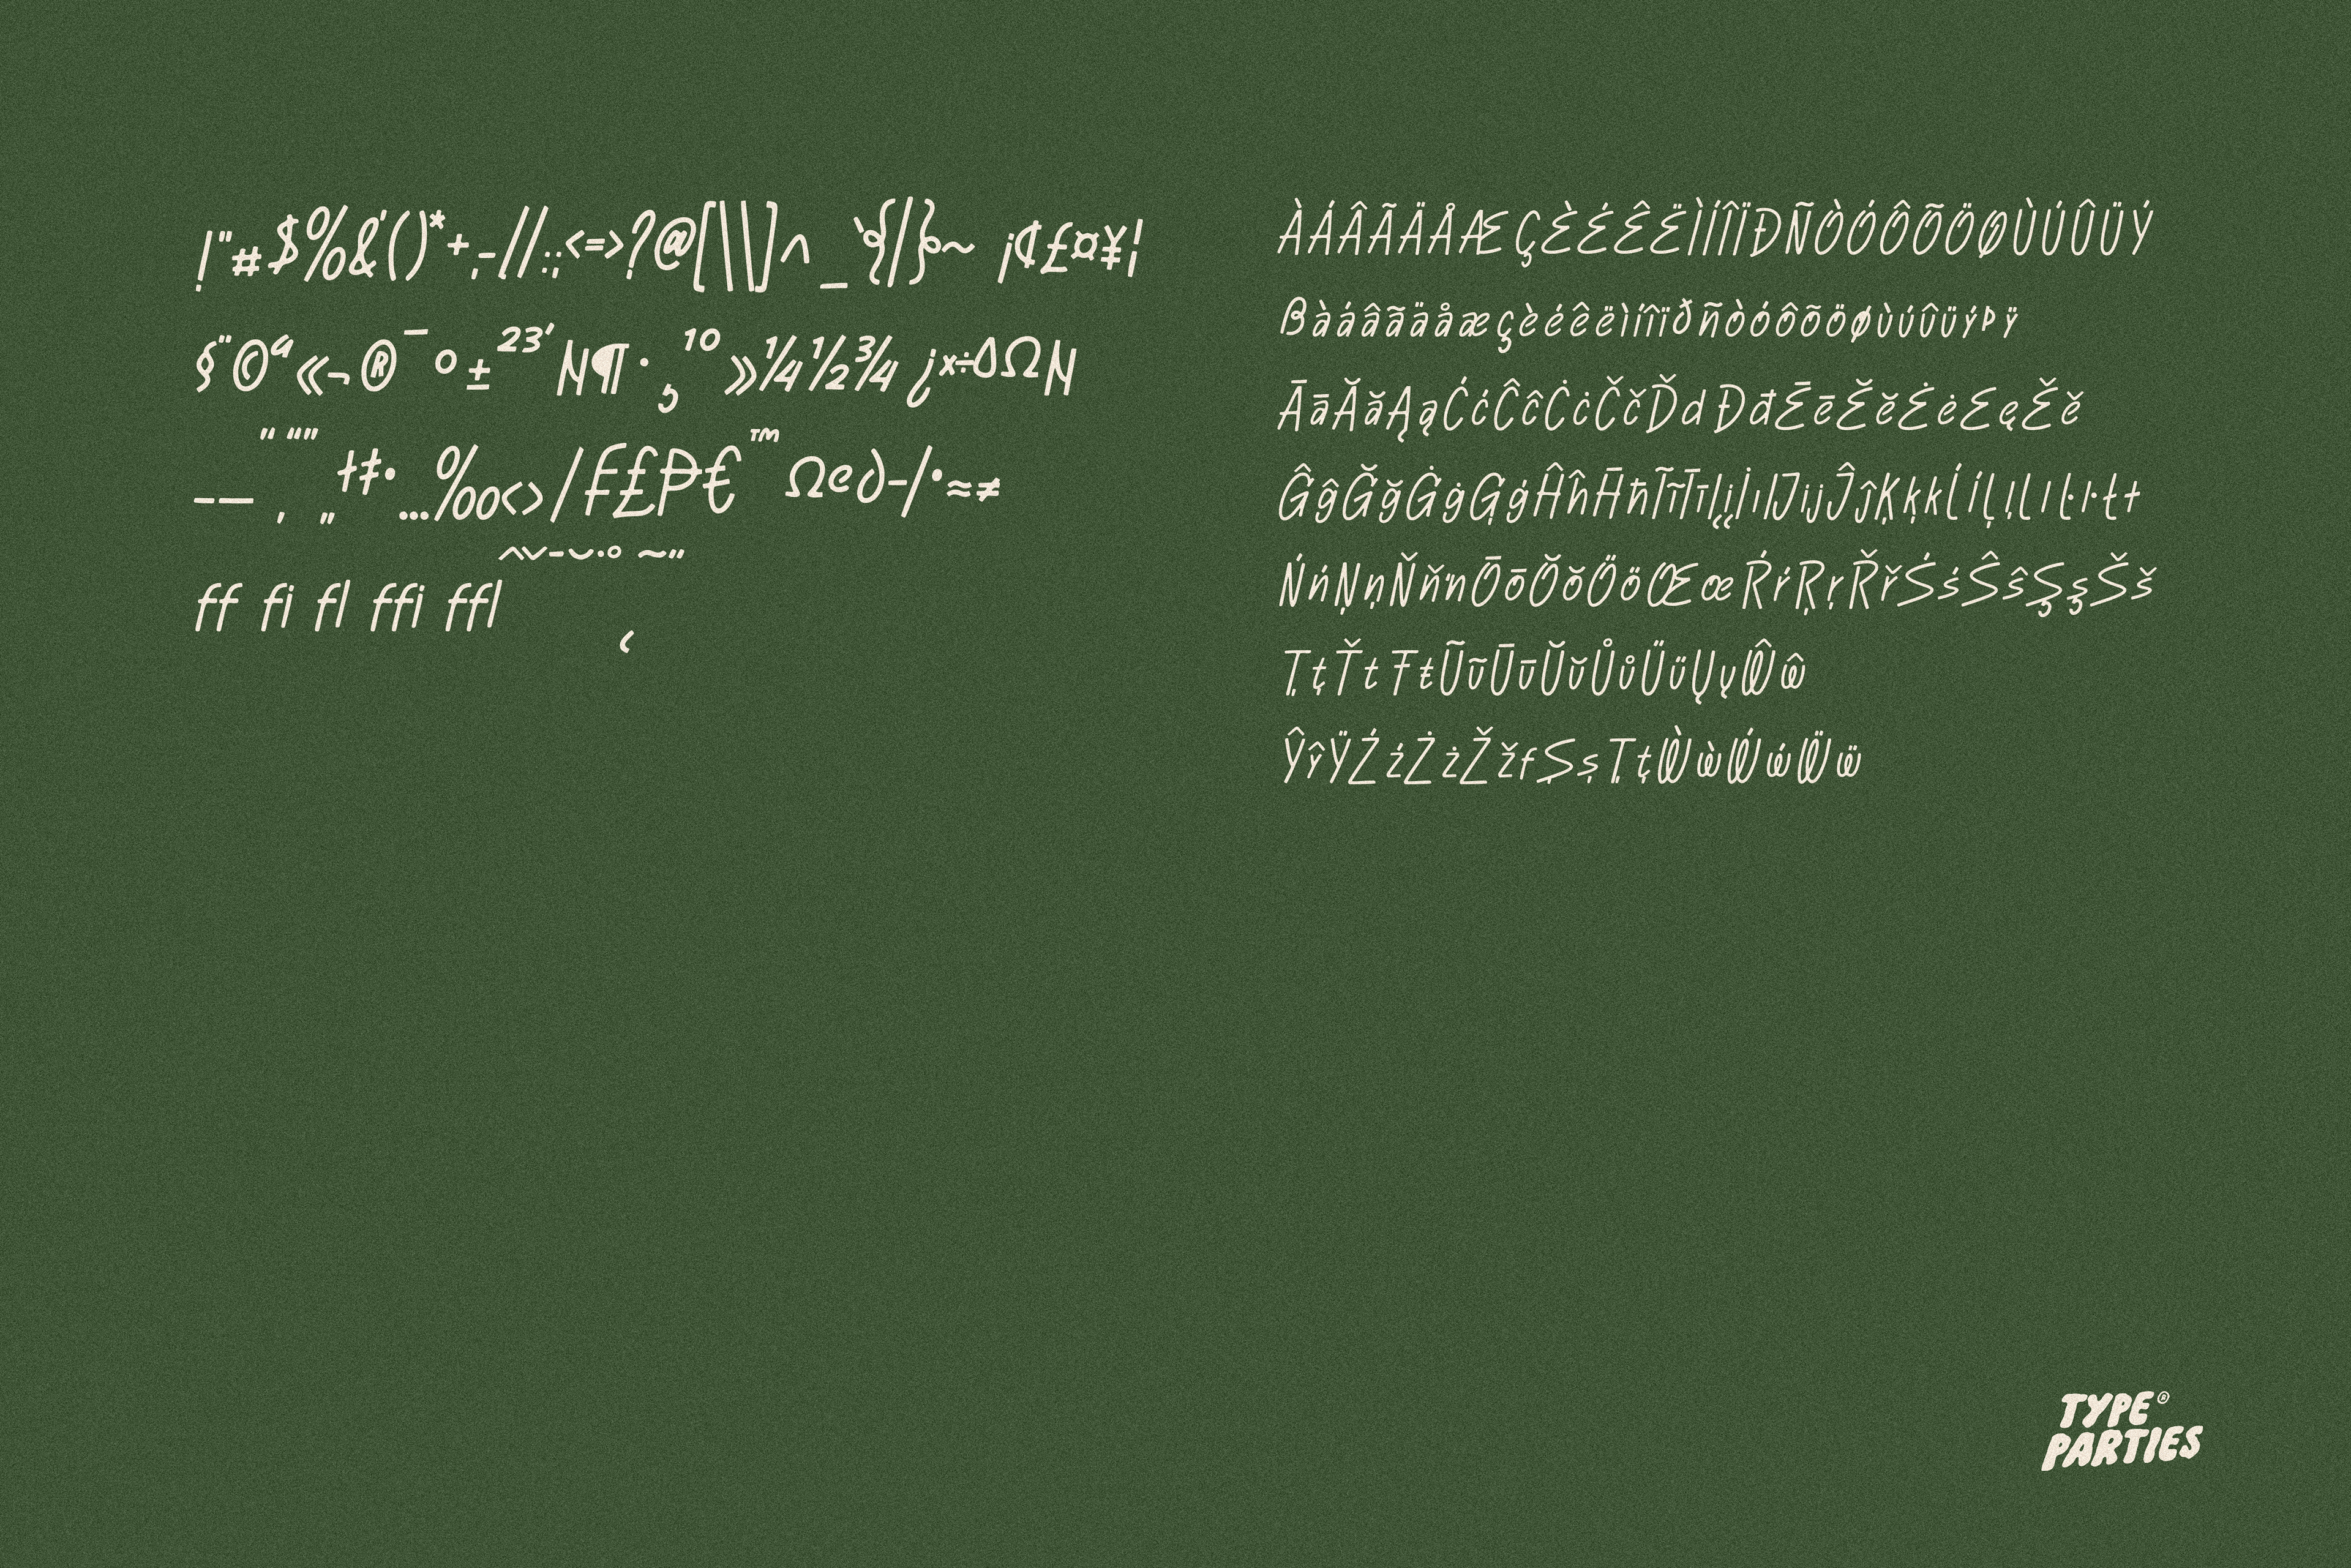 !"#$%&'()*+,-//:;<=>?@[\\]^_`{|}~ ¡¢£¤¥¦
§¨©ª«¬®¯°±²³´N¶·¸¹º»¼½¾¿×÷ΔΩN
–—‘’“”‚„†‡•…‰‹›/₣£₱€™Ω℮∂-/•≈≠
ˆˇ-˘˙˚˜˝
ff fi fl ffi ffl
ÀÁÂÃÄÅÆÇÈÉÊËÌÍÎÏÐÑÒÓÔÕÖØÙÚÛÜÝ
ßàáâãäåæçèéêëìíîïðñòóôõöøùúûüýþÿ
ĀāĂăĄąĆćĈĉĊċČčĎdĐđĒēĔĕĖėĘęĚě
ĜĝĞğĠġĢģĤĥĦħĨĩĪīĮįİıIJijĴĵĶķkĹĺĻļLlĿŀŁł
ŃńŅņŇňŉŌōŎŏÖöŒœŔŕŖŗŘřŚśŜŝŞşŠš
ŢţŤtŦŧŨũŪūŬŭŮůÜüŲųŴŵ
ŶŷŸŹźŻżŽžfȘșȚțẀẁẂẃẄẅ
TYPE®
PARTIES